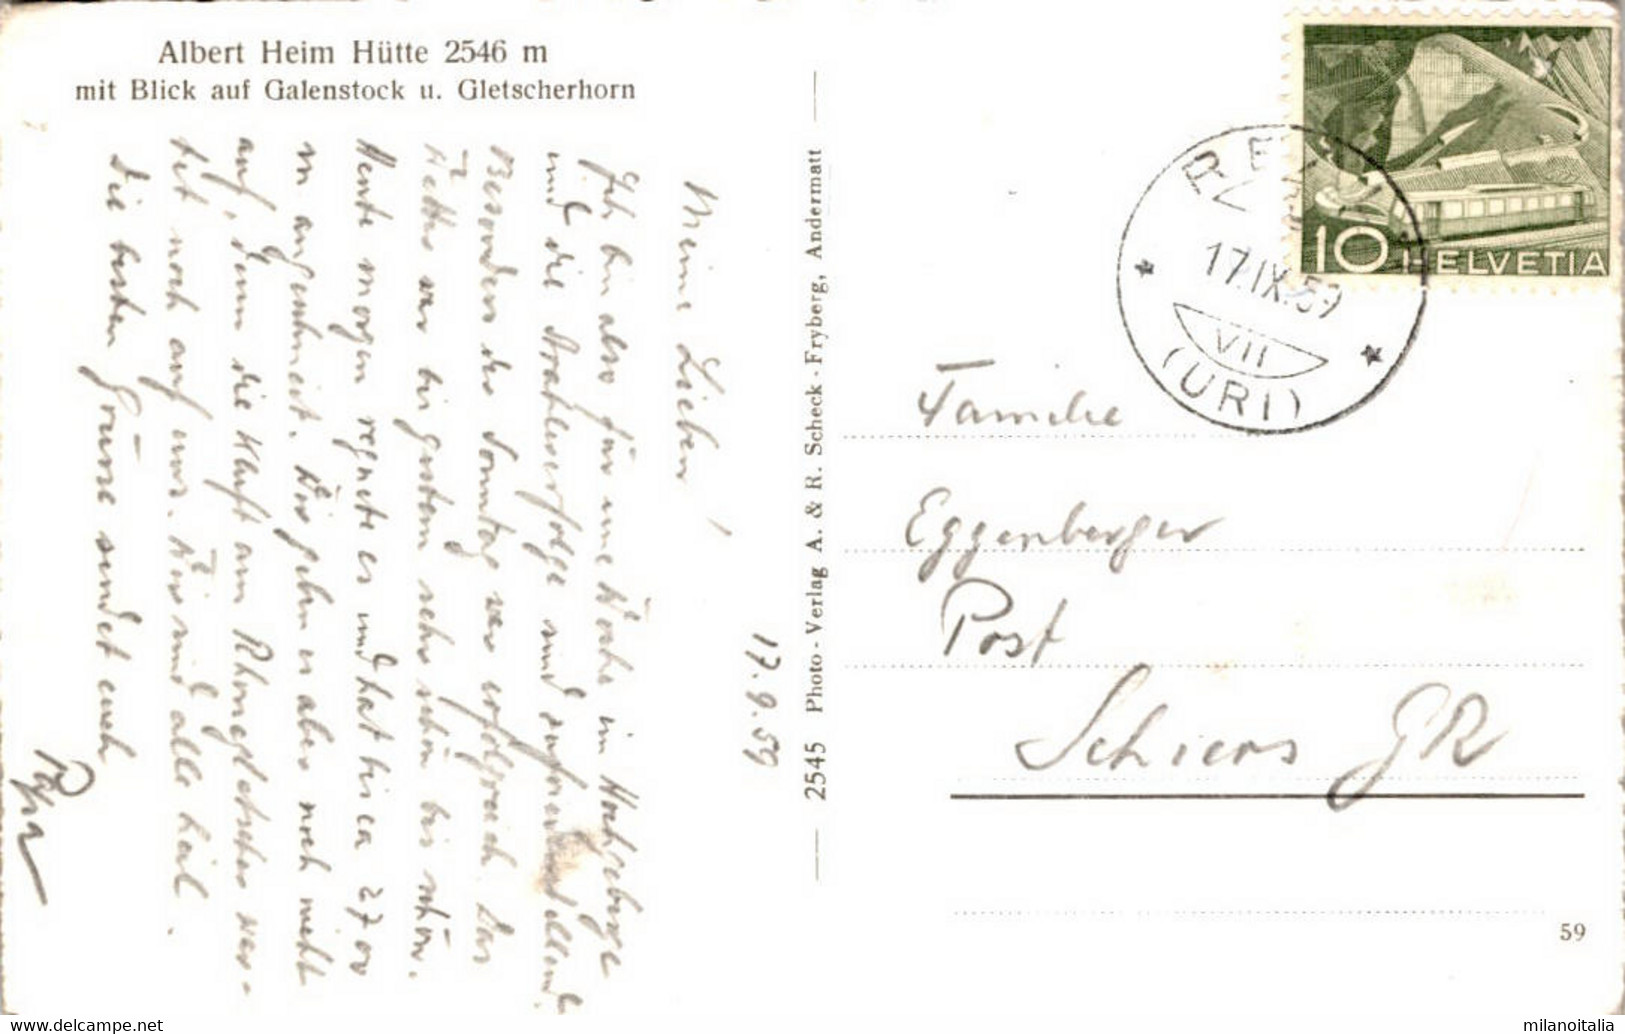 Albert Heim Hütte 2546 m
mit Blick auf Galenstock u. Gletscherhorn
17.9.59
Meine Lieben!
Ich bin also für eine Woche im Hochgebirge
und die Strahlerfolge sind zufriedenstellend.
Besonders der Sonntag war erfolgreich. Das
Wetter war bis gestern sehr schön bis schön.
Heute morgen regnete es und hat bis ca 2700
m angeschneit. Wir geben es aber noch nicht
auf, denn die Kluft am Rhonegletscher war-
tet noch auf uns. Wir sind alle heil.
Die besten Grüsse sendet euch
2545 Photo-Verlag A. & R. Scheck-Fryberg, Andermatt
10 HELVETIA
17.IX.59
VII
(URI)
Familie
Eggenberger
Post
Schiers GR
59
www.delcampe.net
milanoitalia